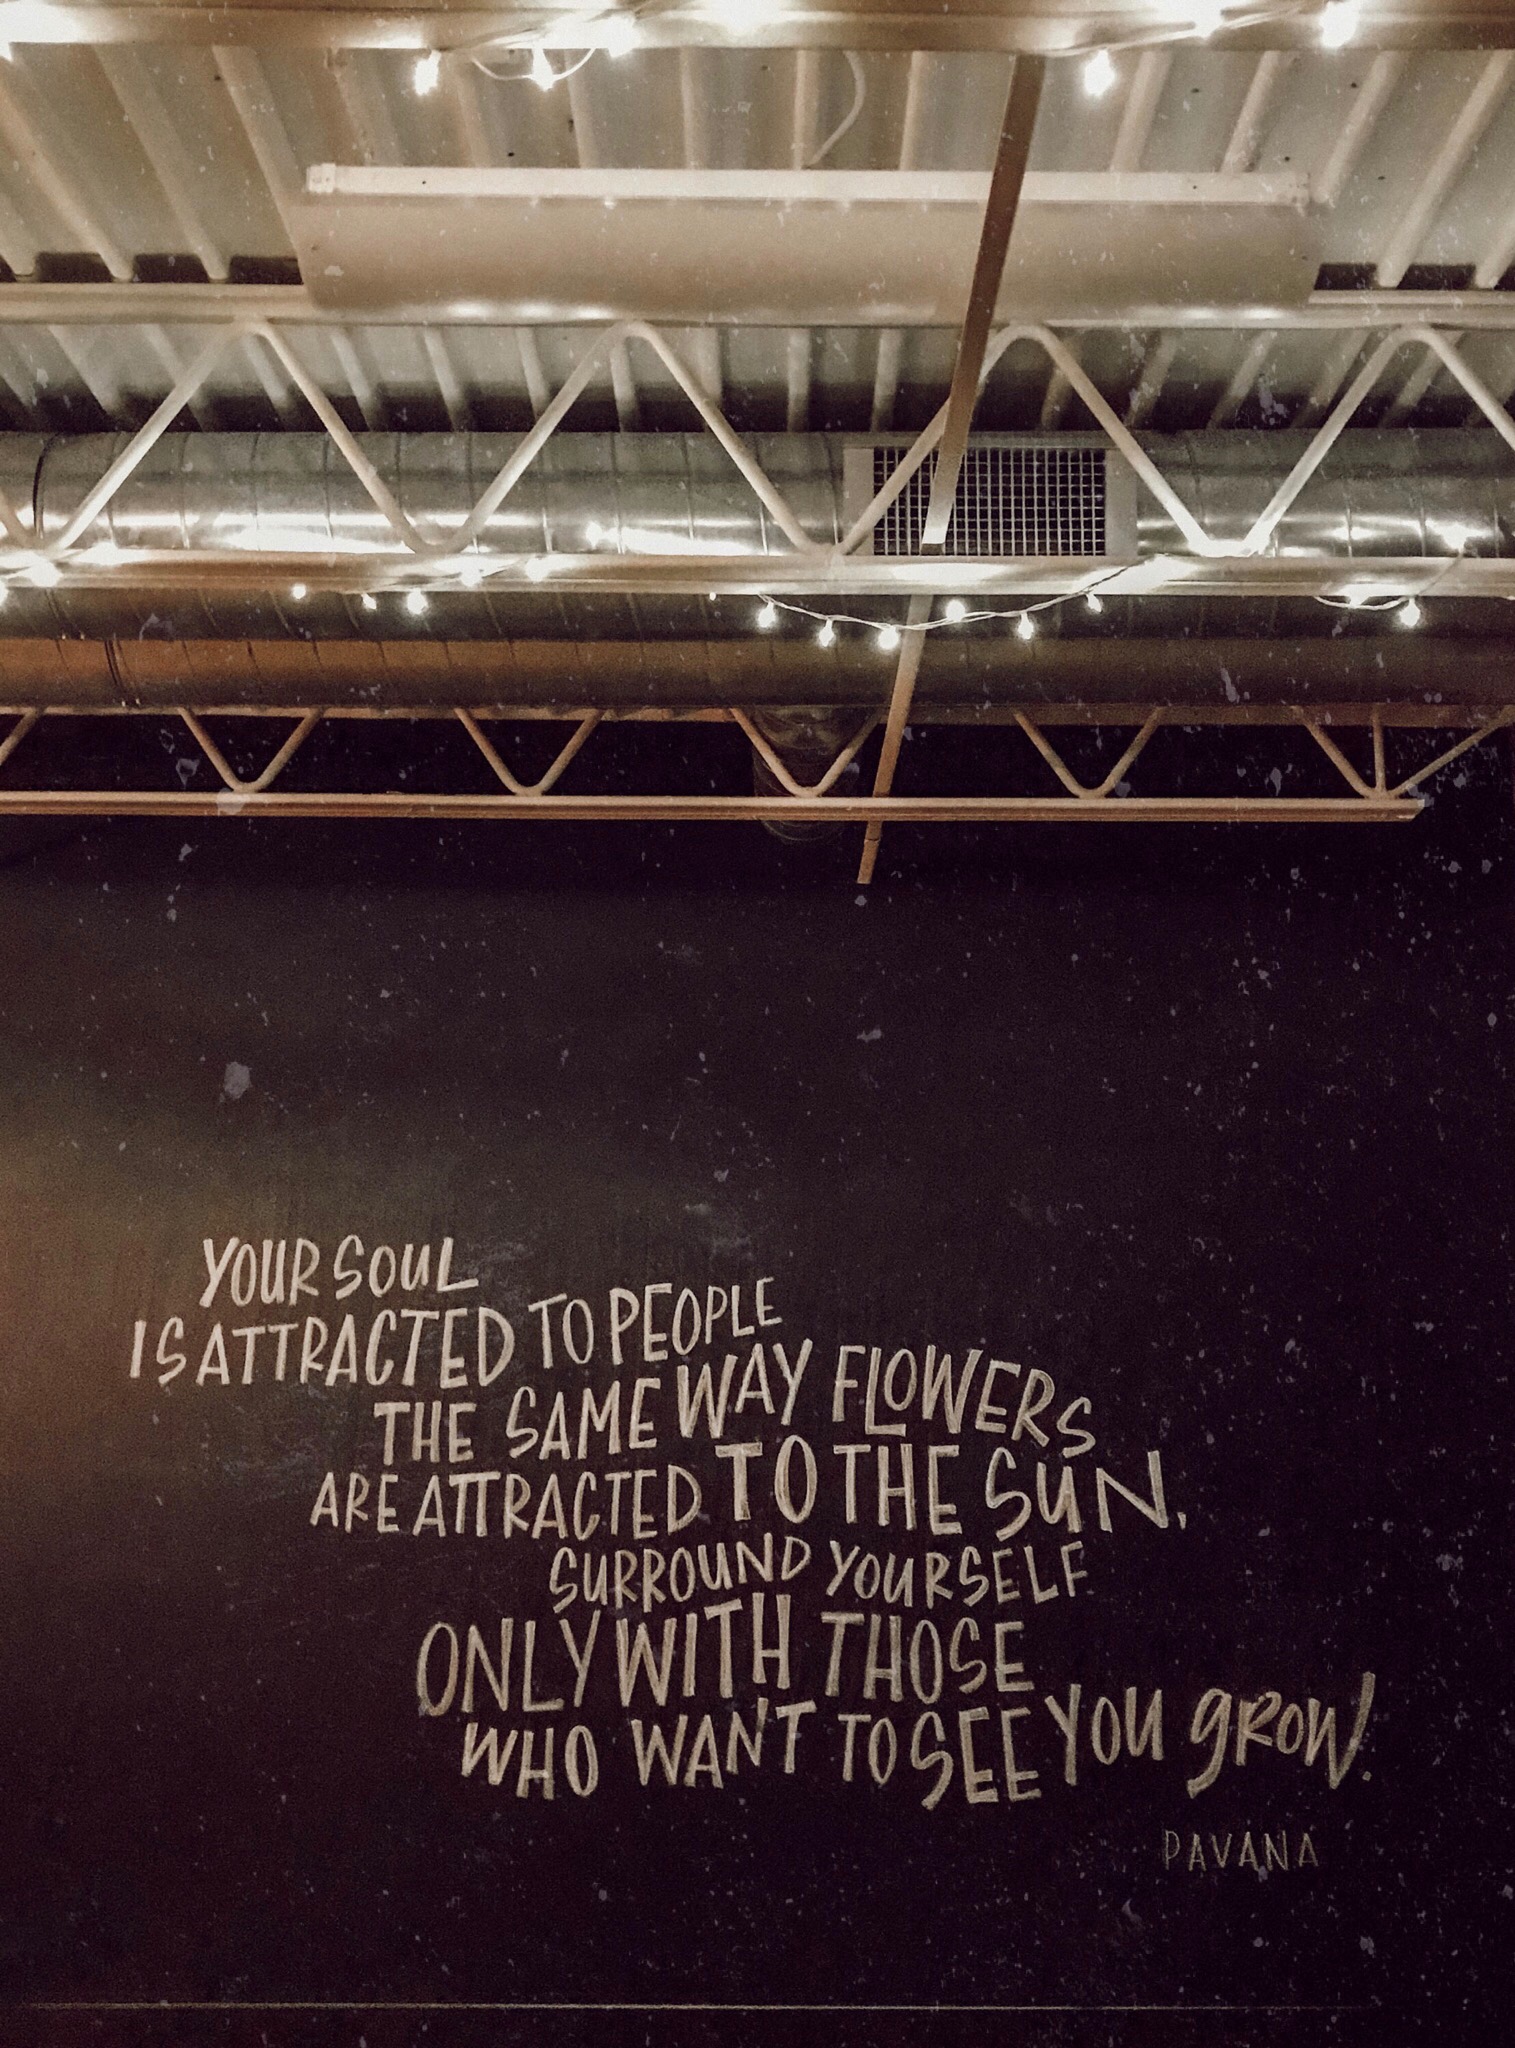 YOUR SOUL
IS ATTRACTED TO PEOPLE
THE SAME WAY FLOWERS
ARE ATTRACTED TO THE SUN.
SURROUND YOURSELF
ONLY WITH THOSE
WHO WANT TO SEE YOU gROW.
PAVANA